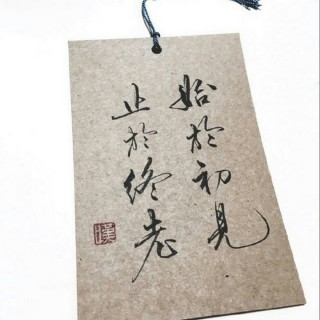 始於初見
止於終老
漢